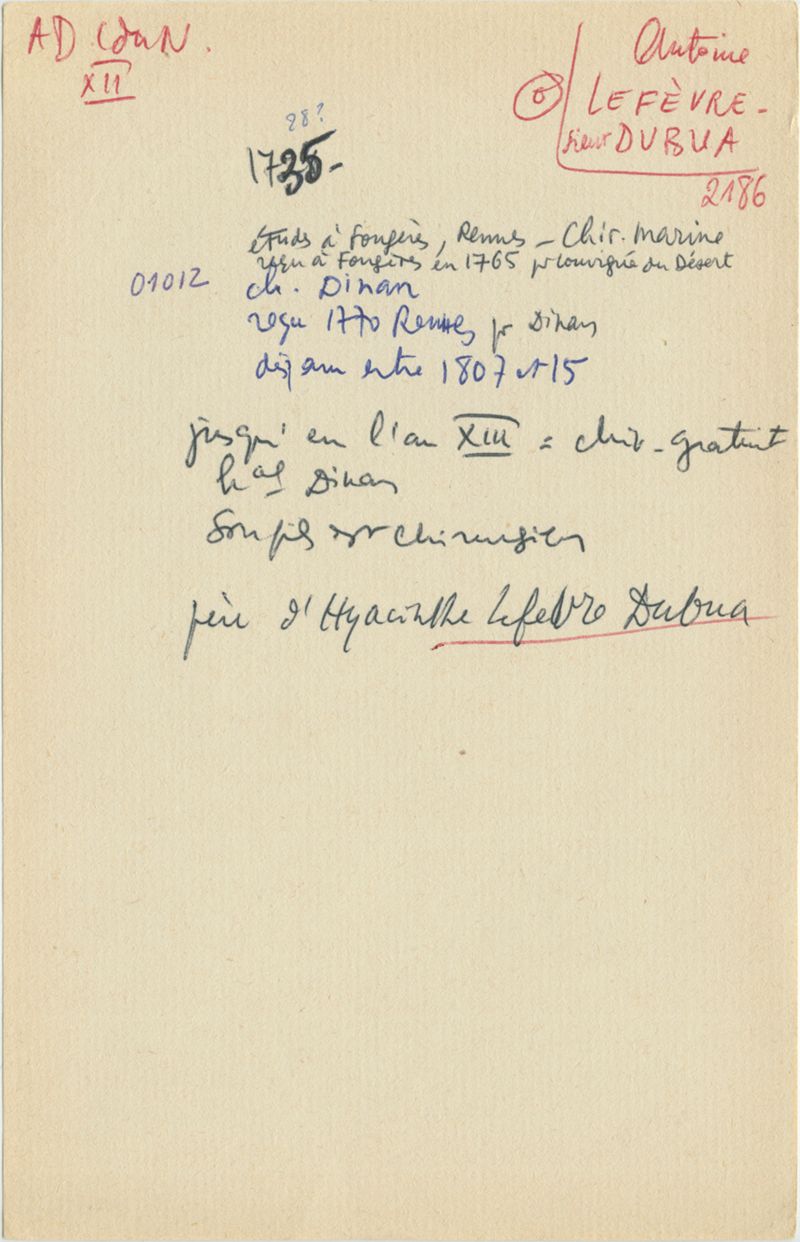 AD CduN.
XII
Antoine
LEFÈVRE-
sieur DUBUA
2186
28?
1735-
études à Fougères, Rennes - Chir. Marine
reçu à Fougères en 1765 pr Louvigné du Désert
01012 ch. Dinan
reçu 1770 Rennes pr Dinan
entre 1807 et 15
jusqu'en l'an XIII = chir. gratuit
hal Dinan
Son fils est chirurgien
père d'Hyacinthe Lefebvre Dubua